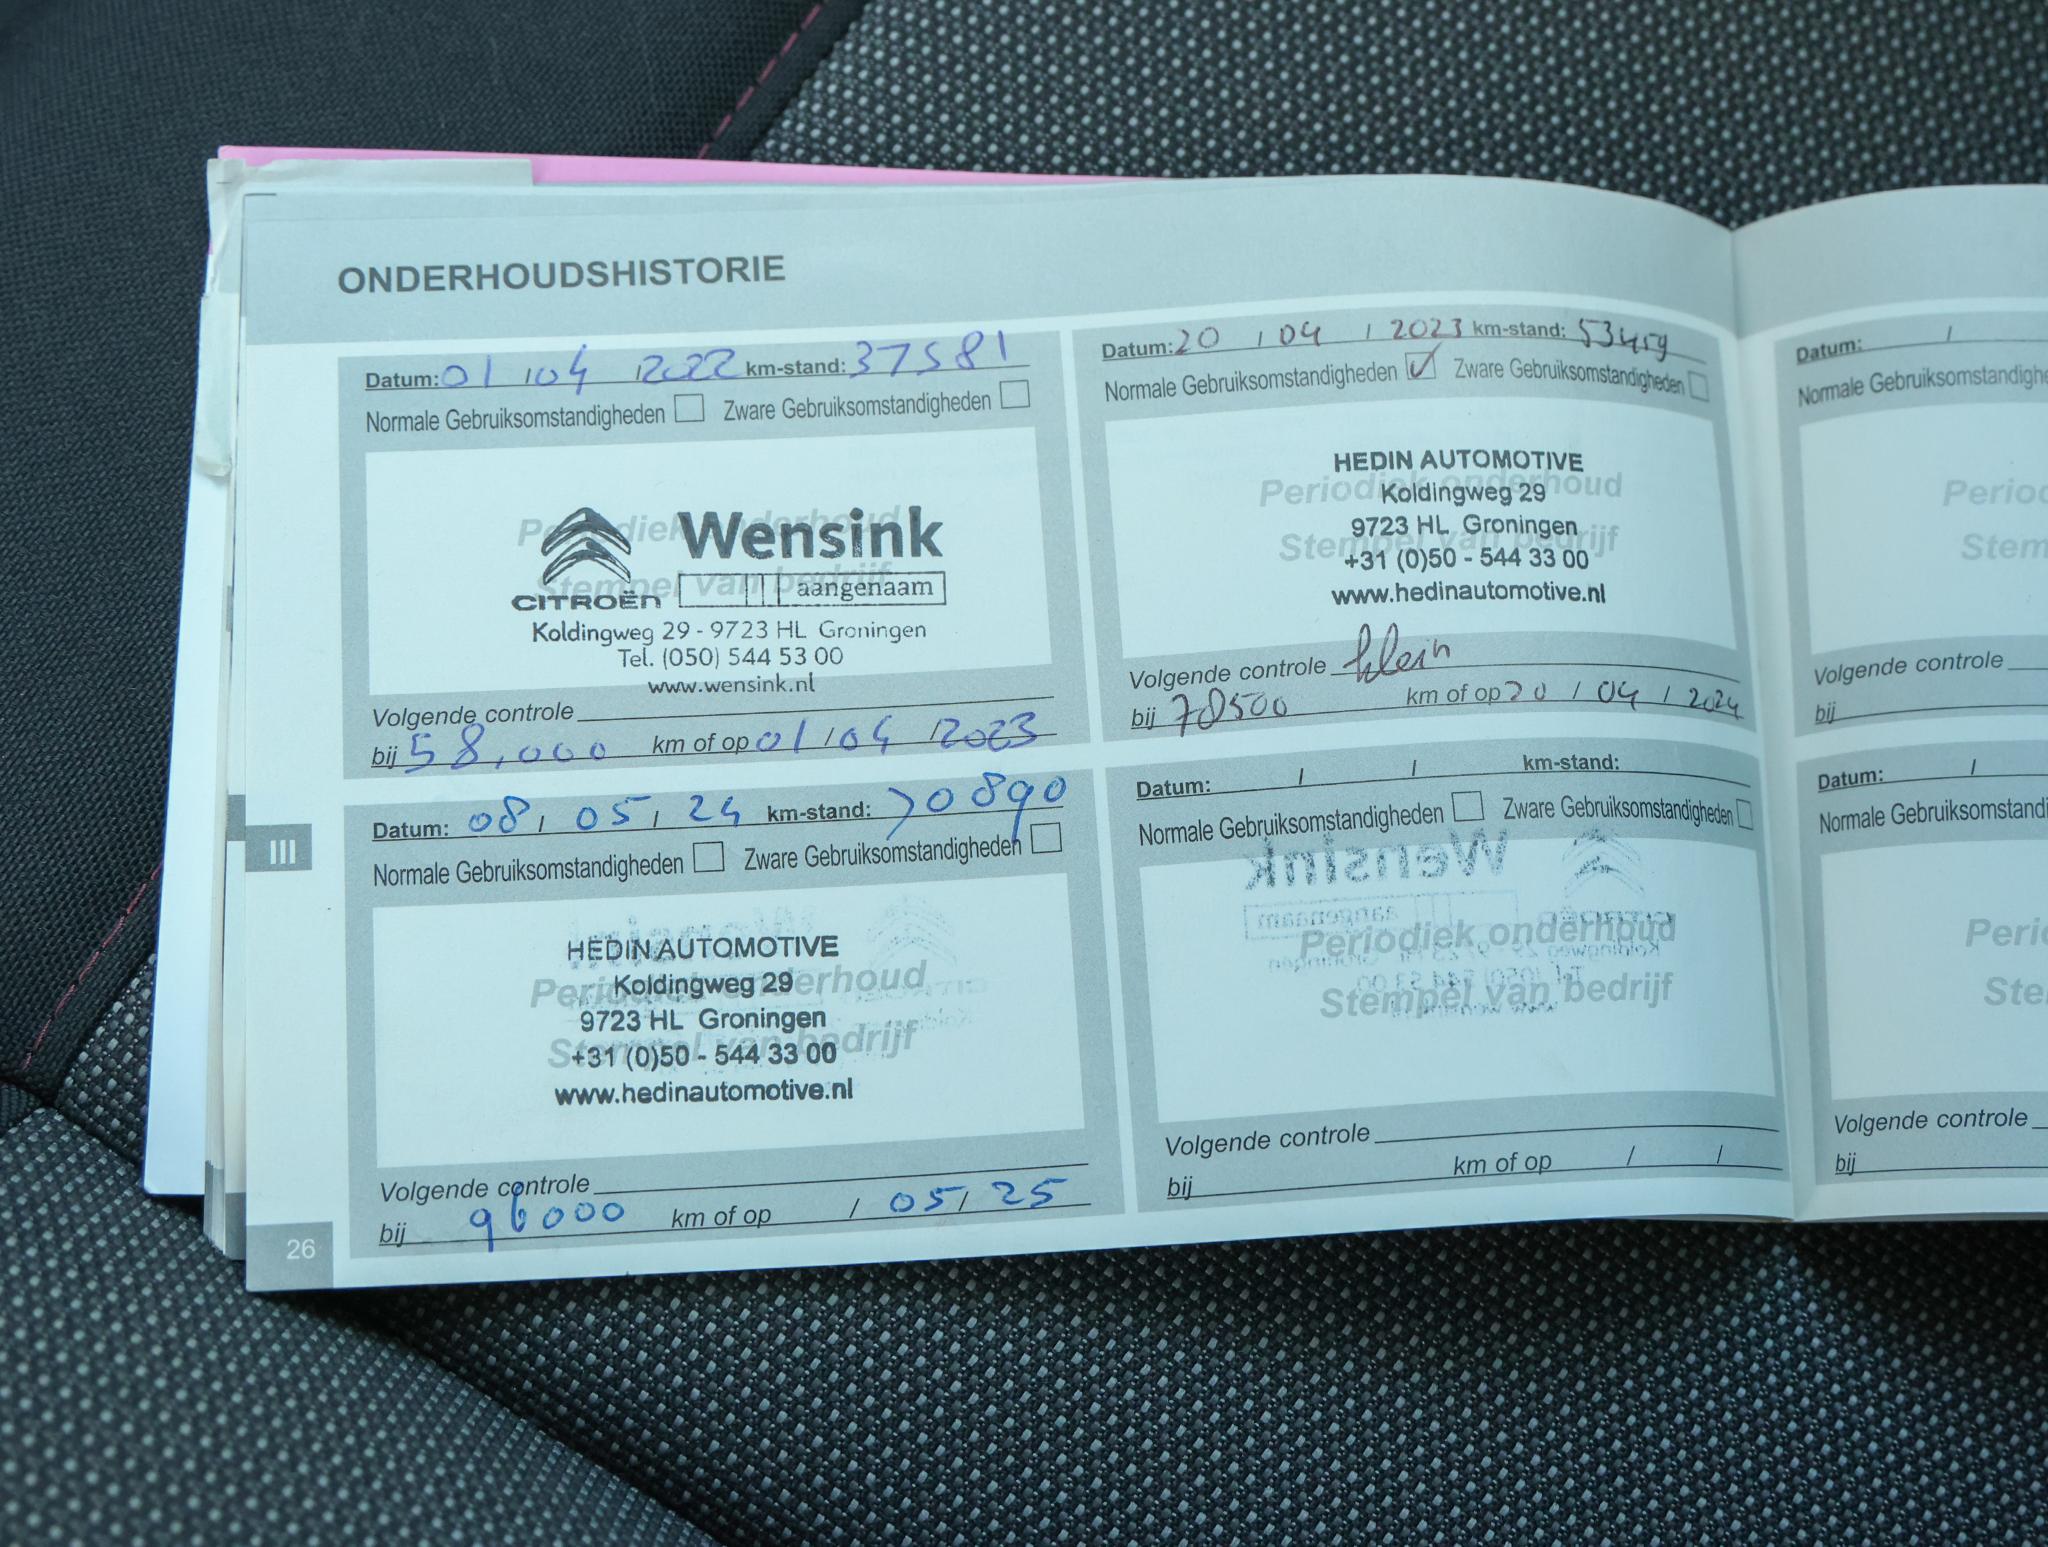 ONDERHOUDSHISTORIE
Datum: 01 / 04 / 2022 km-stand: 37581
Normale Gebruiksomstandigheden Zware Gebruiksomstandigheden
Periodiek onderhoud
Stempel van bedrijf
Wensink
CITROËN aangenaam
Koldingweg 29 - 9723 HL Groningen
Tel. (050) 544 53 00
www.wensink.nl
Volgende controle
bij 58.000 km of op 01 / 04 / 2023
Datum: 20 / 04 / 2023 km-stand: 53459
Normale Gebruiksomstandigheden ✓ Zware Gebruiksomstandigheden
Periodiek onderhoud
Stempel van bedrijf
HEDIN AUTOMOTIVE
Koldingweg 29
9723 HL Groningen
+31 (0)50 - 544 33 00
www.hedinautomotive.nl
Volgende controle klein
bij 78500 km of op 20 / 04 / 2024
Datum: 08 / 05 / 24 km-stand: 70890
Normale Gebruiksomstandigheden Zware Gebruiksomstandigheden
Periodiek onderhoud
Stempel van bedrijf
HEDIN AUTOMOTIVE
Koldingweg 29
9723 HL Groningen
+31 (0)50 - 544 33 00
www.hedinautomotive.nl
Volgende controle
bij 96000 km of op / 05 / 25
Datum: / / km-stand:
Normale Gebruiksomstandigheden Zware Gebruiksomstandigheden
Wensink
aangenaam CITROËN
Periodiek onderhoud
Stempel van bedrijf
Volgende controle
bij km of op / /
III
26
Datum: /
Normale Gebruiksomstandighe
Perio
Stem
Volgende controle
bij
Datum: /
Normale Gebruiksomstandi
Peri
Ste
Volgende controle
bij